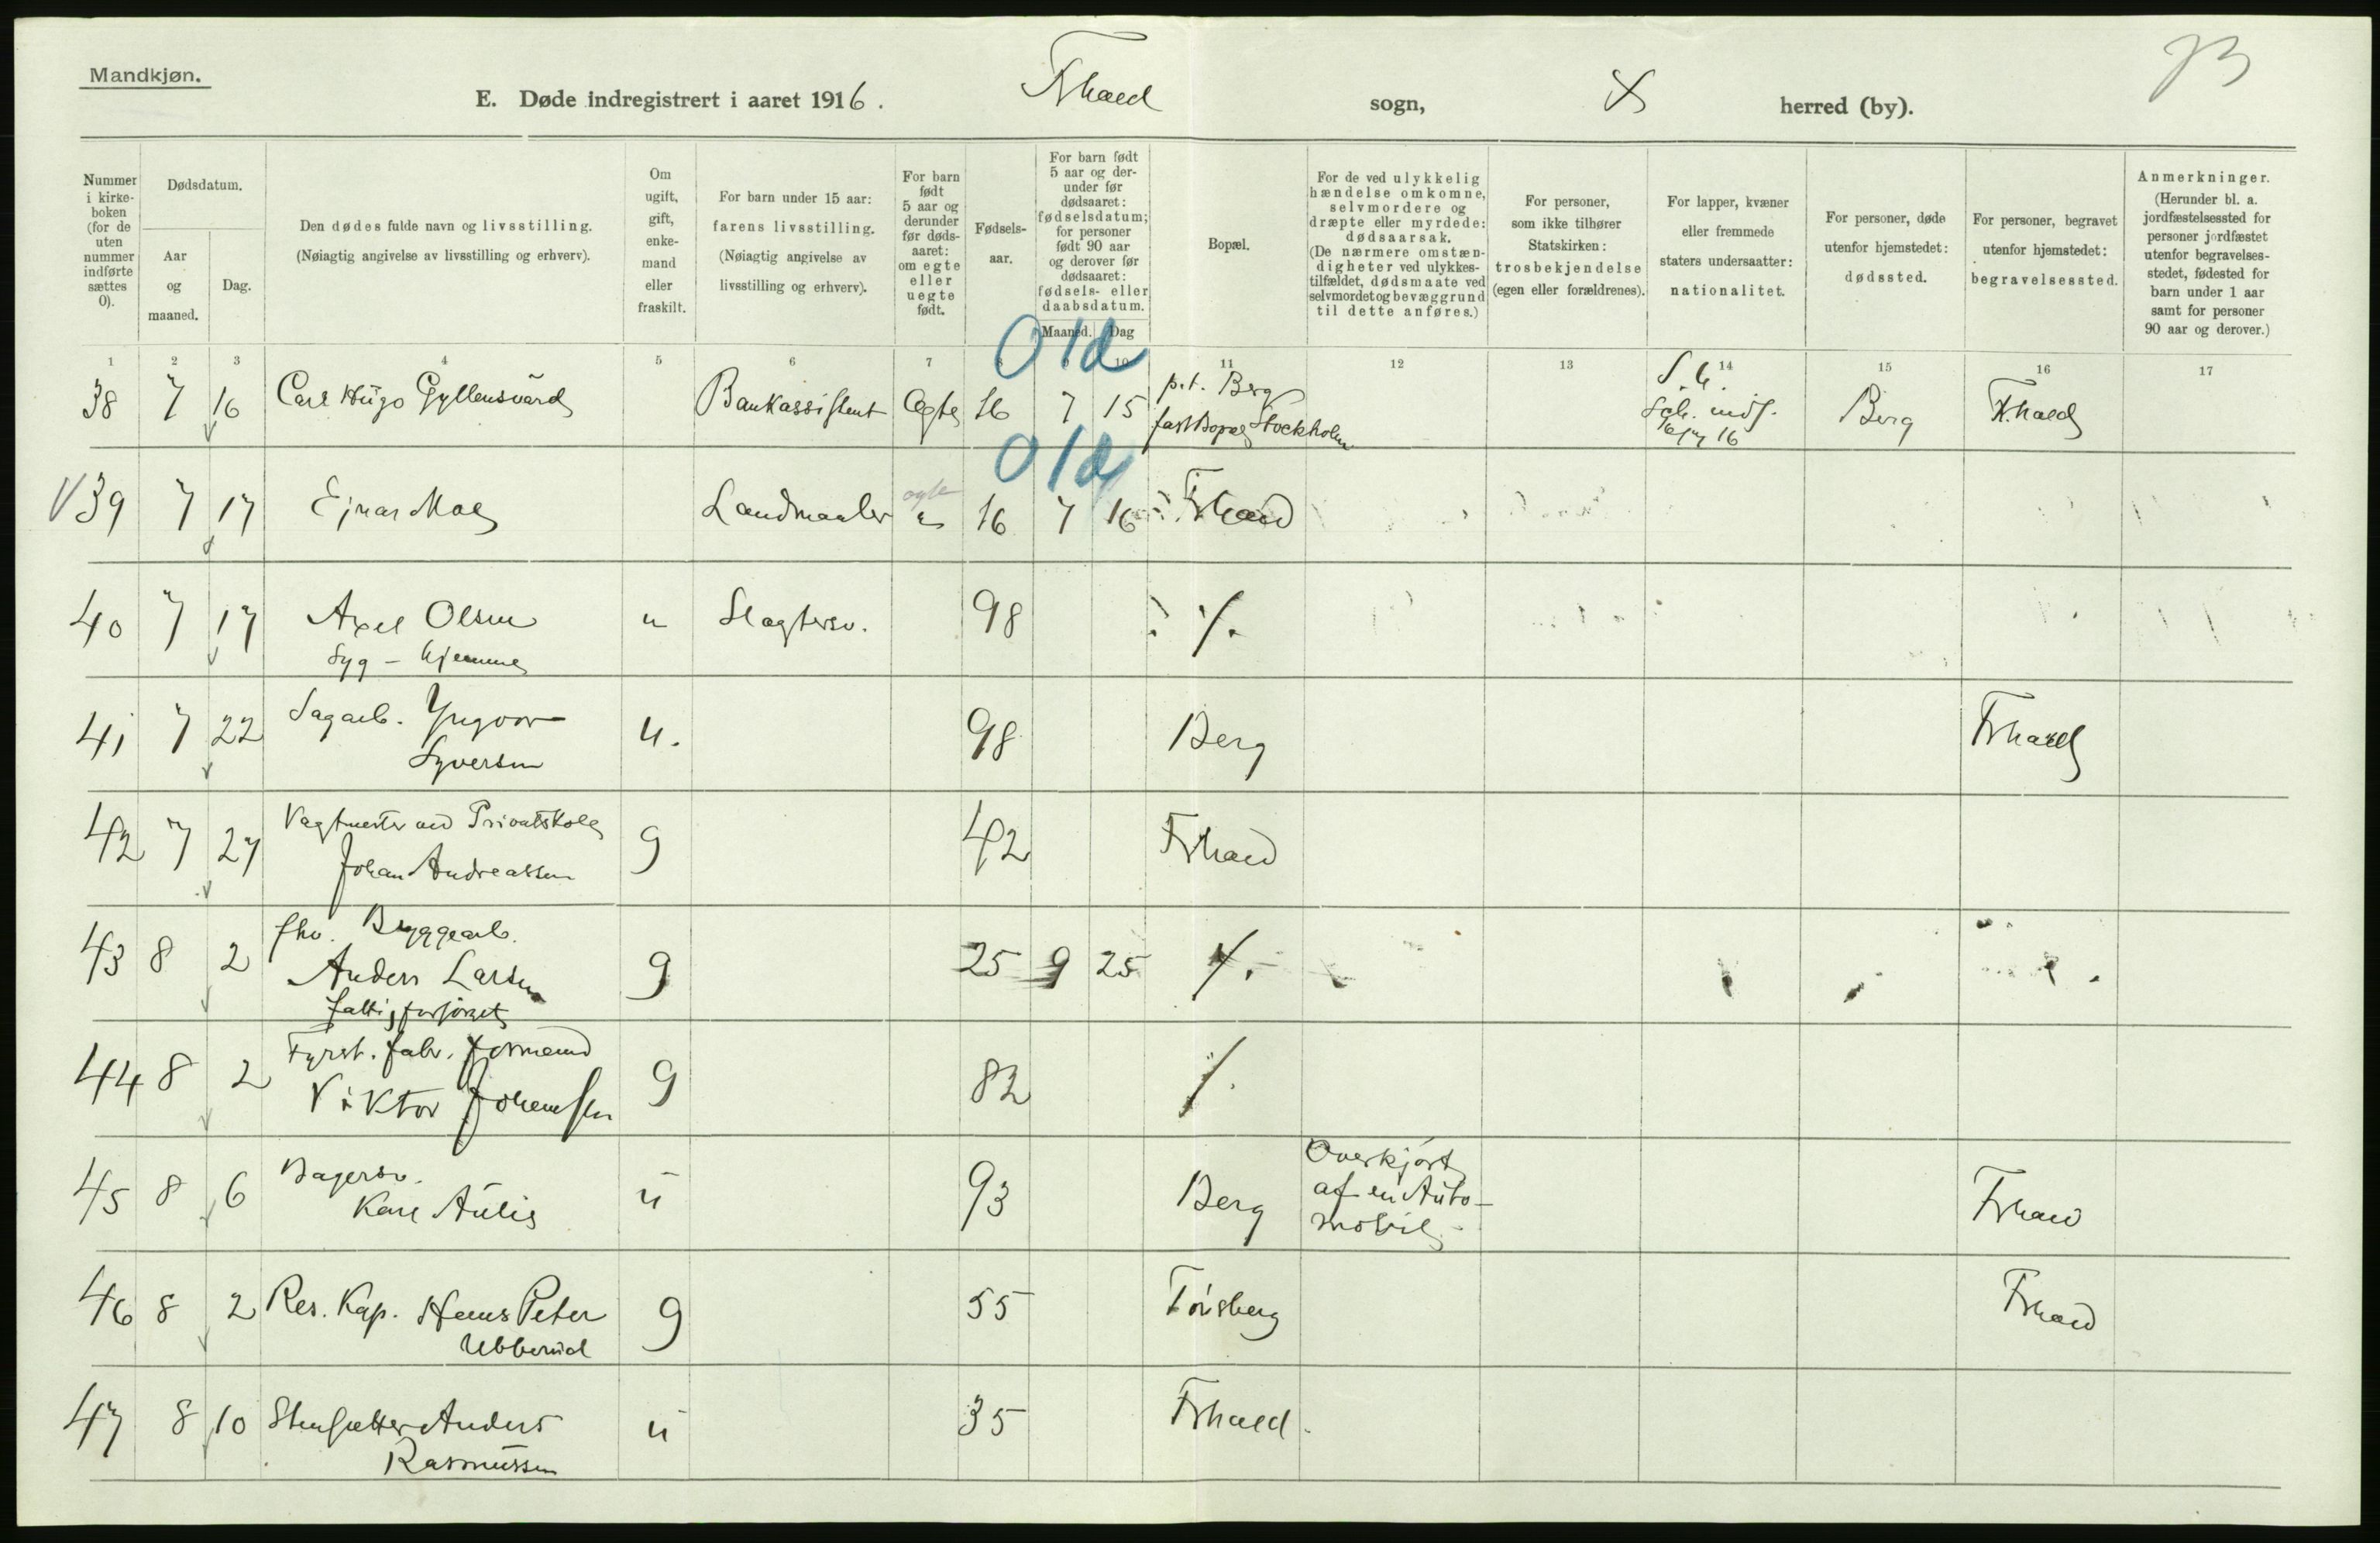 Mandkjøn.
E. Døde indregistrert i aaret 1916. Frhald sogn, herred (by).
Nummer i kirke-boken (for de uten nummer indførte sættes 0).
Dødsdatum.
Aar og maaned.
Dag.
Den dødes fulde navn og livsstilling.
(Nøiagtig angivelse av livsstilling og erhverv).
Om ugift, gift, enke-mand eller fraskilt.
For barn under 15 aar: farens livsstilling.
(Nøiagtig angivelse av livsstilling og erhverv).
For barn født 5 aar og derunder før døds-aaret: om egte eller uegte født.
Fødsels-aar.
For barn født 5 aar og der-under før dødsaaret: fødselsdatum; for personer født 90 aar og derover før dødsaaret: fødsels- eller daabsdatum.
Maaned. Dag
Bopæl.
For de ved ulykkelig hændelse omkomne, selvmordere og dræpte eller myrdede: dødsaarsak.
(De nærmere omstæn-digheter ved ulykkes-tilfældet, dødsmaate ved selvmord et og bevæggrund til dette anføres.)
For personer, som ikke tilhører Statskirken: trosbekjendelse (egen eller forældrenes).
For lapper, kvæner eller fremmede staters undersaatter: nationalitet.
For personer, døde utenfor hjemstedet: dødssted.
For personer, begravet utenfor hjemstedet: begravelsessted.
Anmerkninger.
(Herunder bl. a. jordfæstelsessted for personer jordfæstet utenfor begravelses-stedet, fødested for barn under 1 aar samt for personer 90 aar og derover.)
1 2 3 4 5 6 7 8 9 10 11 12 13 14 15 16 17
0 1d
38 7 16 Carl Hugo Gyllensvärd Bankassistent Egte 16 7 15 p.t. Berg
fast Bopæl Stockholm
Berg Frhald
0 1d
39 7 17 Ejnar Moe Landmaaler egte 16 7 16 Frhald
40 7 17 Axel Olsen u Slagtersv. 98 ·/.
Syg - hjemme
41 7 22 Sagarb. Yngvar
Syversen u. 98 Berg Frhald
42 7 27 Vagtmester ved Privatskole
Johan Andreassen g 42 Frhald
43 8 2 fhv. Bryggearb.
Anders Larsen g 25 9 25 ·/.
fattigforsørget
44 8 2 Fyrst. fabr. formand
Viktor Johansen g 82 ·/.
45 8 6 Bagersv.
Karl Aulie u 93 Berg Overkjørt
af en Auto-
mobil Frhald
46 8 2 Res. Kap. Hans Peter
Ubberud g 55 Tønsberg Frhald
47 8 10 Stenhutter Anders
Rasmussen u 35 Frhald.